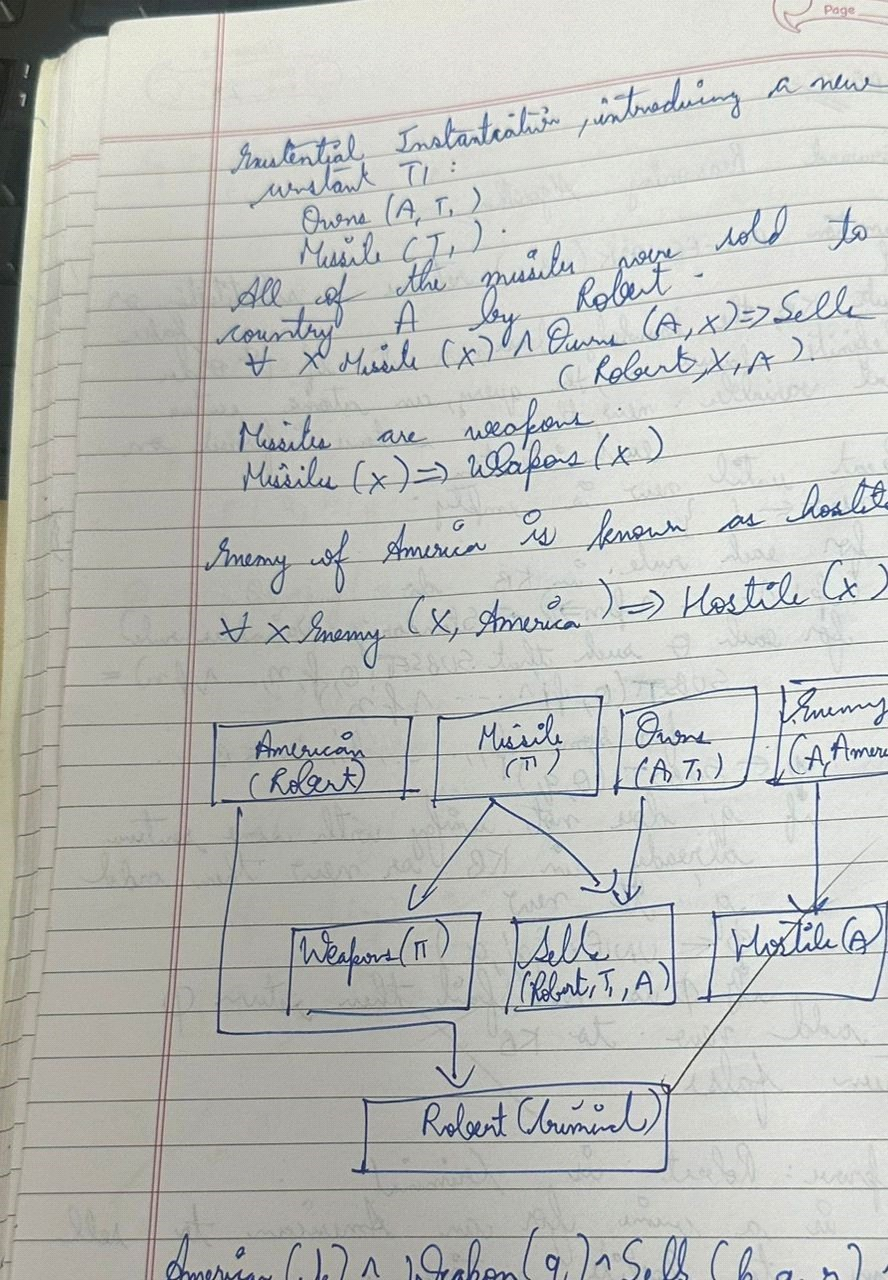 Page
Existential Instantiation, introducing a new
constant T1 :
Owns (A, T1)
Missile (T1).
All of the missiles were sold to
country A by Robert.
∀ x Missile (x) ∧ Owns (A, x) => Sells
(Robert, x, A).
Missiles are weapons.
Missiles (x) => Weapons (x)
Enemy of America is known as hostile
∀ x Enemy (x, America) => Hostile (x)
American (Robert)
Missile (T1)
Owns (A, T1)
Enemy (A, Ameri
Weapons (T1)
Sells (Robert, T1, A)
Hostile (A)
Robert (Criminal)
American (p) ∧ Weapon (q) ∧ Sells (p, q, r)